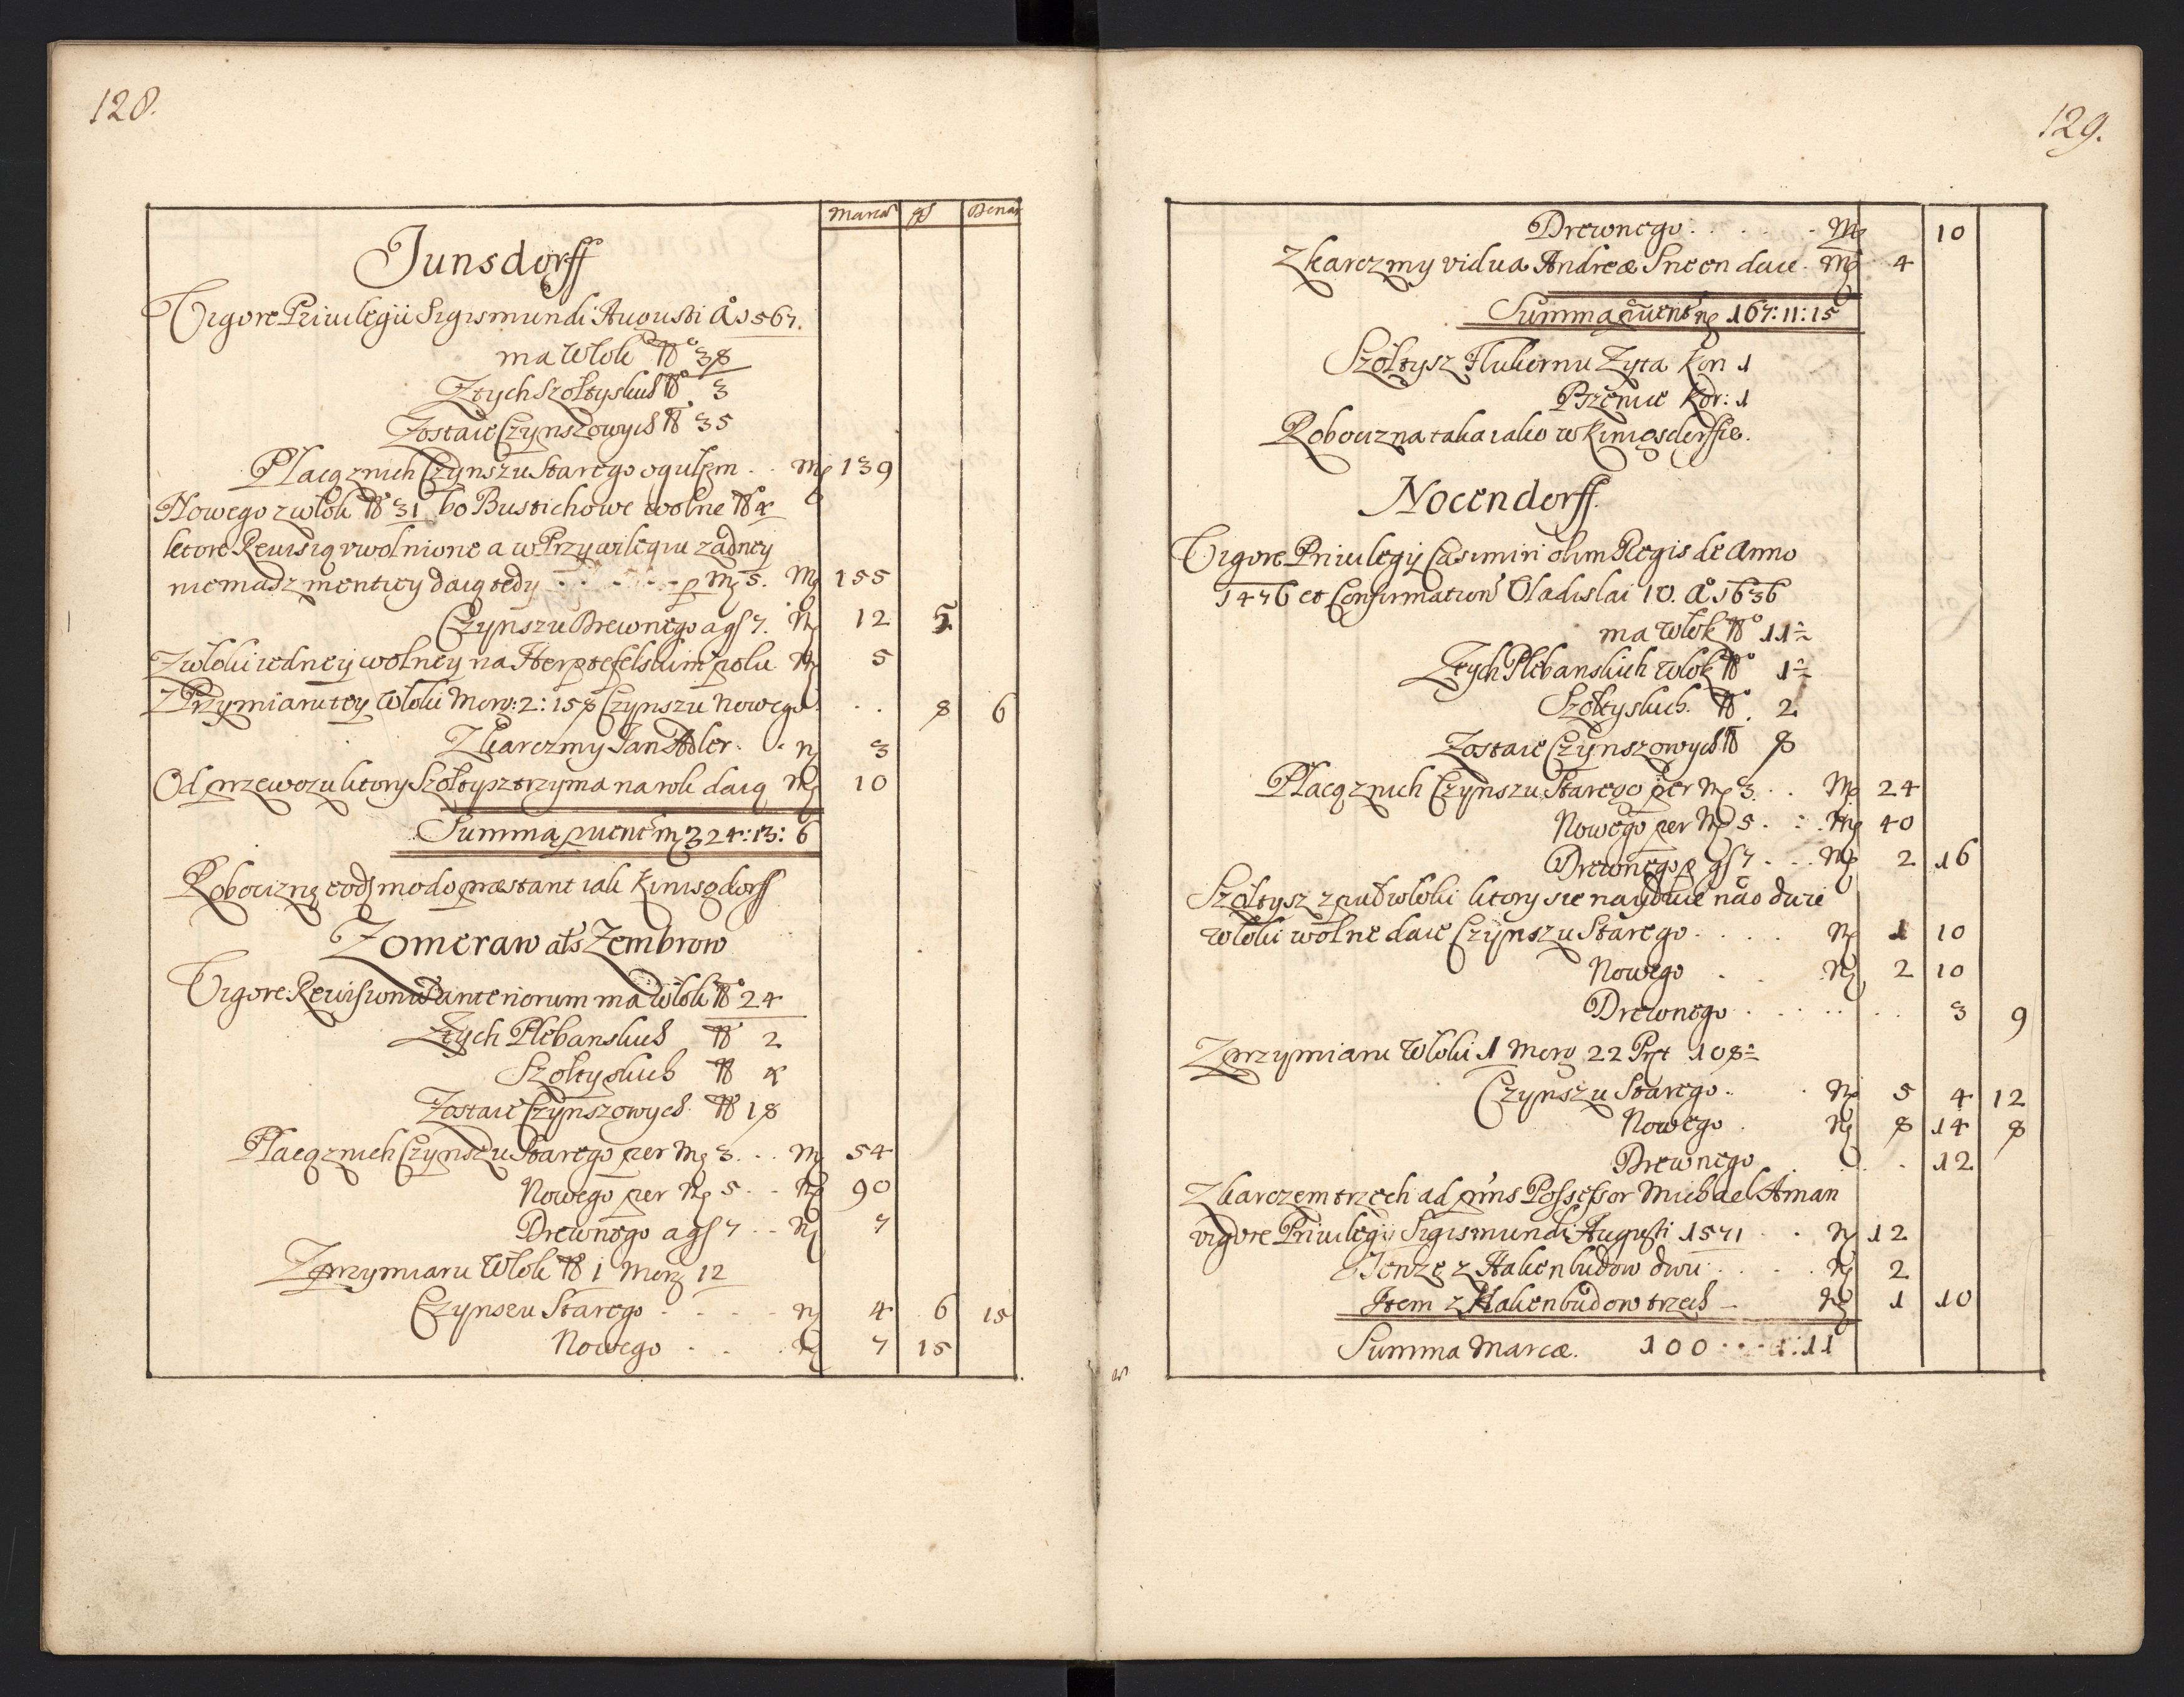 128.
Marcæ gſ Denar
Junsdorff
Vigore Priuilegii Sigismundi Augusti A° 1567.
ma Włok N° 38
Z tych Szołtyskich N° 3
Zostaie Czynszowych N 35
Płacą z nich Czynszu Starego ogułem . . Mȝ 139
Nowego z włok N° 31 bo Bustichowe wolne N° 4
ktore Rewisią vwolnione a w Przywilegiu żadney
niemasz mentiey daią tedy . . . . . p Mȝ 5. Mȝ 155
Czynszu Drewnego a gſ 7. Mȝ 12 5
Z włoki iedney wolney na polu Mȝ 5
Z Przymiaru tey Włoki Morg: 2: 158 Czynszu Nowego . . 8 6
Z karczmy Jan Adler . . Mȝ 3
Od przewozu ktory Szołtysz trzyma na roli daią Mȝ 10
Summa mȝ 224: 13: 6
Robociznę eodȝ modo præstant iak Kinisgdorff
Zomeraw als Zembrow
Vigore Reuisionū anteriorum ma Włok N° 24
Z tych Plebanskich N° 2
Szołtyskich N 4
Zostaie Czynszowych N 18
Płacą z nich Czynszu Starego per Mȝ 3. . . Mȝ 54
Nowego per Mȝ 5 . . Mȝ 90
Drewnego a gſ 7 . . Mȝ 7
Z przymiaru Włok N 1 Morg 12
Czynszu Starego . . . . Mȝ 4 6 15
Nowego . . . Mȝ 7 15
129.
Drewnego . . . . . Mȝ 10
Z karczmy vidua Andreæ Sneen daie . Mȝ 4
Summa mȝ 167: 11: 15
Szołtysz Zyta Kor 1
Pszenice Kor: 1
Robocizna taka iako w Kinigsderffie.
Nocendorff.
Vigore Priuilegij Casimiri olim Regis de Anno
1476 et Confirmation Vladislai IV. A° 1636
ma Włok N° 11 ½
Z tych Plebanskich Włok N° 1 ½
Szołtyskich. N°. 2
Zostaie Czynszowych N 8
Płacą z nich Czynszu Starego per Mȝ 3. . . Mȝ 24
Nowego per Mȝ 5 . . . Mȝ 40
Drewnego p gſ 7 . . . Mȝ 2 16
Szołtysz z puł włoki ktory sie nayduie nad dwie
Włoki wolne daie Czynszu Starego . . . . Mȝ 1 10
Nowego . . Mȝ 2 10
Drewnego . . . . . . . 3 9
Z przymiaru Włoki 1 Morg 22 Prt 108 ½
Czynszu Starego . . . Mȝ 5 4 12
Nowego . Mȝ 8 14 8
Drewnego . . . . 12
Z karczem trzech ad pn̄s Possessor Michael Aman
vigore Priuilegij Sigismundi Augusti 1571 . . Mȝ 12
Tenze z Hakenbudow dwu . . . . . Mȝ 2
Item z Hakenbudow trzech – Mȝ 1 10
Summa Marcæ. 100 . . . 1: 11